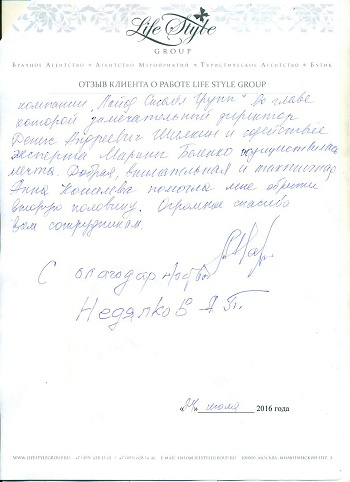 Life Style
GROUP
Брачное Агентство • Агентство Мероприятий • Туристическое Агентство • Бутик
ОТЗЫВ КЛИЕНТА О РАБОТЕ LIFE STYLE GROUP
компании "Лайф Стайл Групп" во главе
которой замечательный директор
Денис Андреевич и содействие
эксперта Марины осуществилась
мечта. Добрая, внимательная и тактичная
Анна помогла мне обрести
вторую половину. Огромное спасибо
всем сотрудникам.
С благодарностью
Недялков А П.
«24» июля 2016 года
WWW.LIFESTYLEGROUP.RU